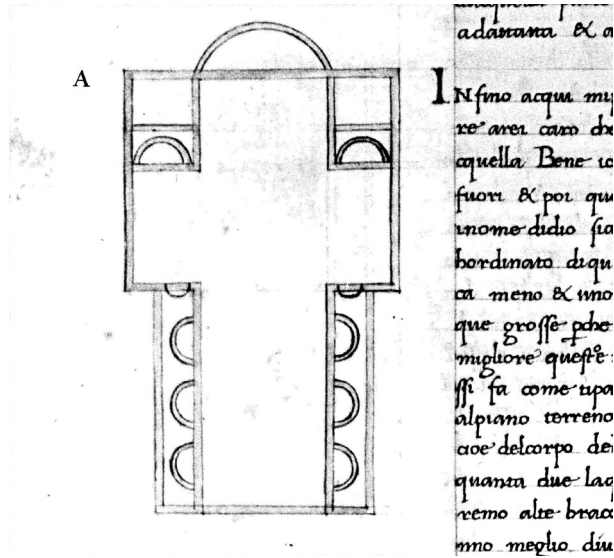 A
adattata & a
INfino acqui mi
re arei caro che
cquella Bene io
fuori & poi que
inome didio sia
hordinato diqu
ca meno & uno
que grosse pche
migliore queste
ssi fa come tipa
alpiano terreno
cioe delcorpo del
quanta due laq
remo alte bracc
nno meglio diui